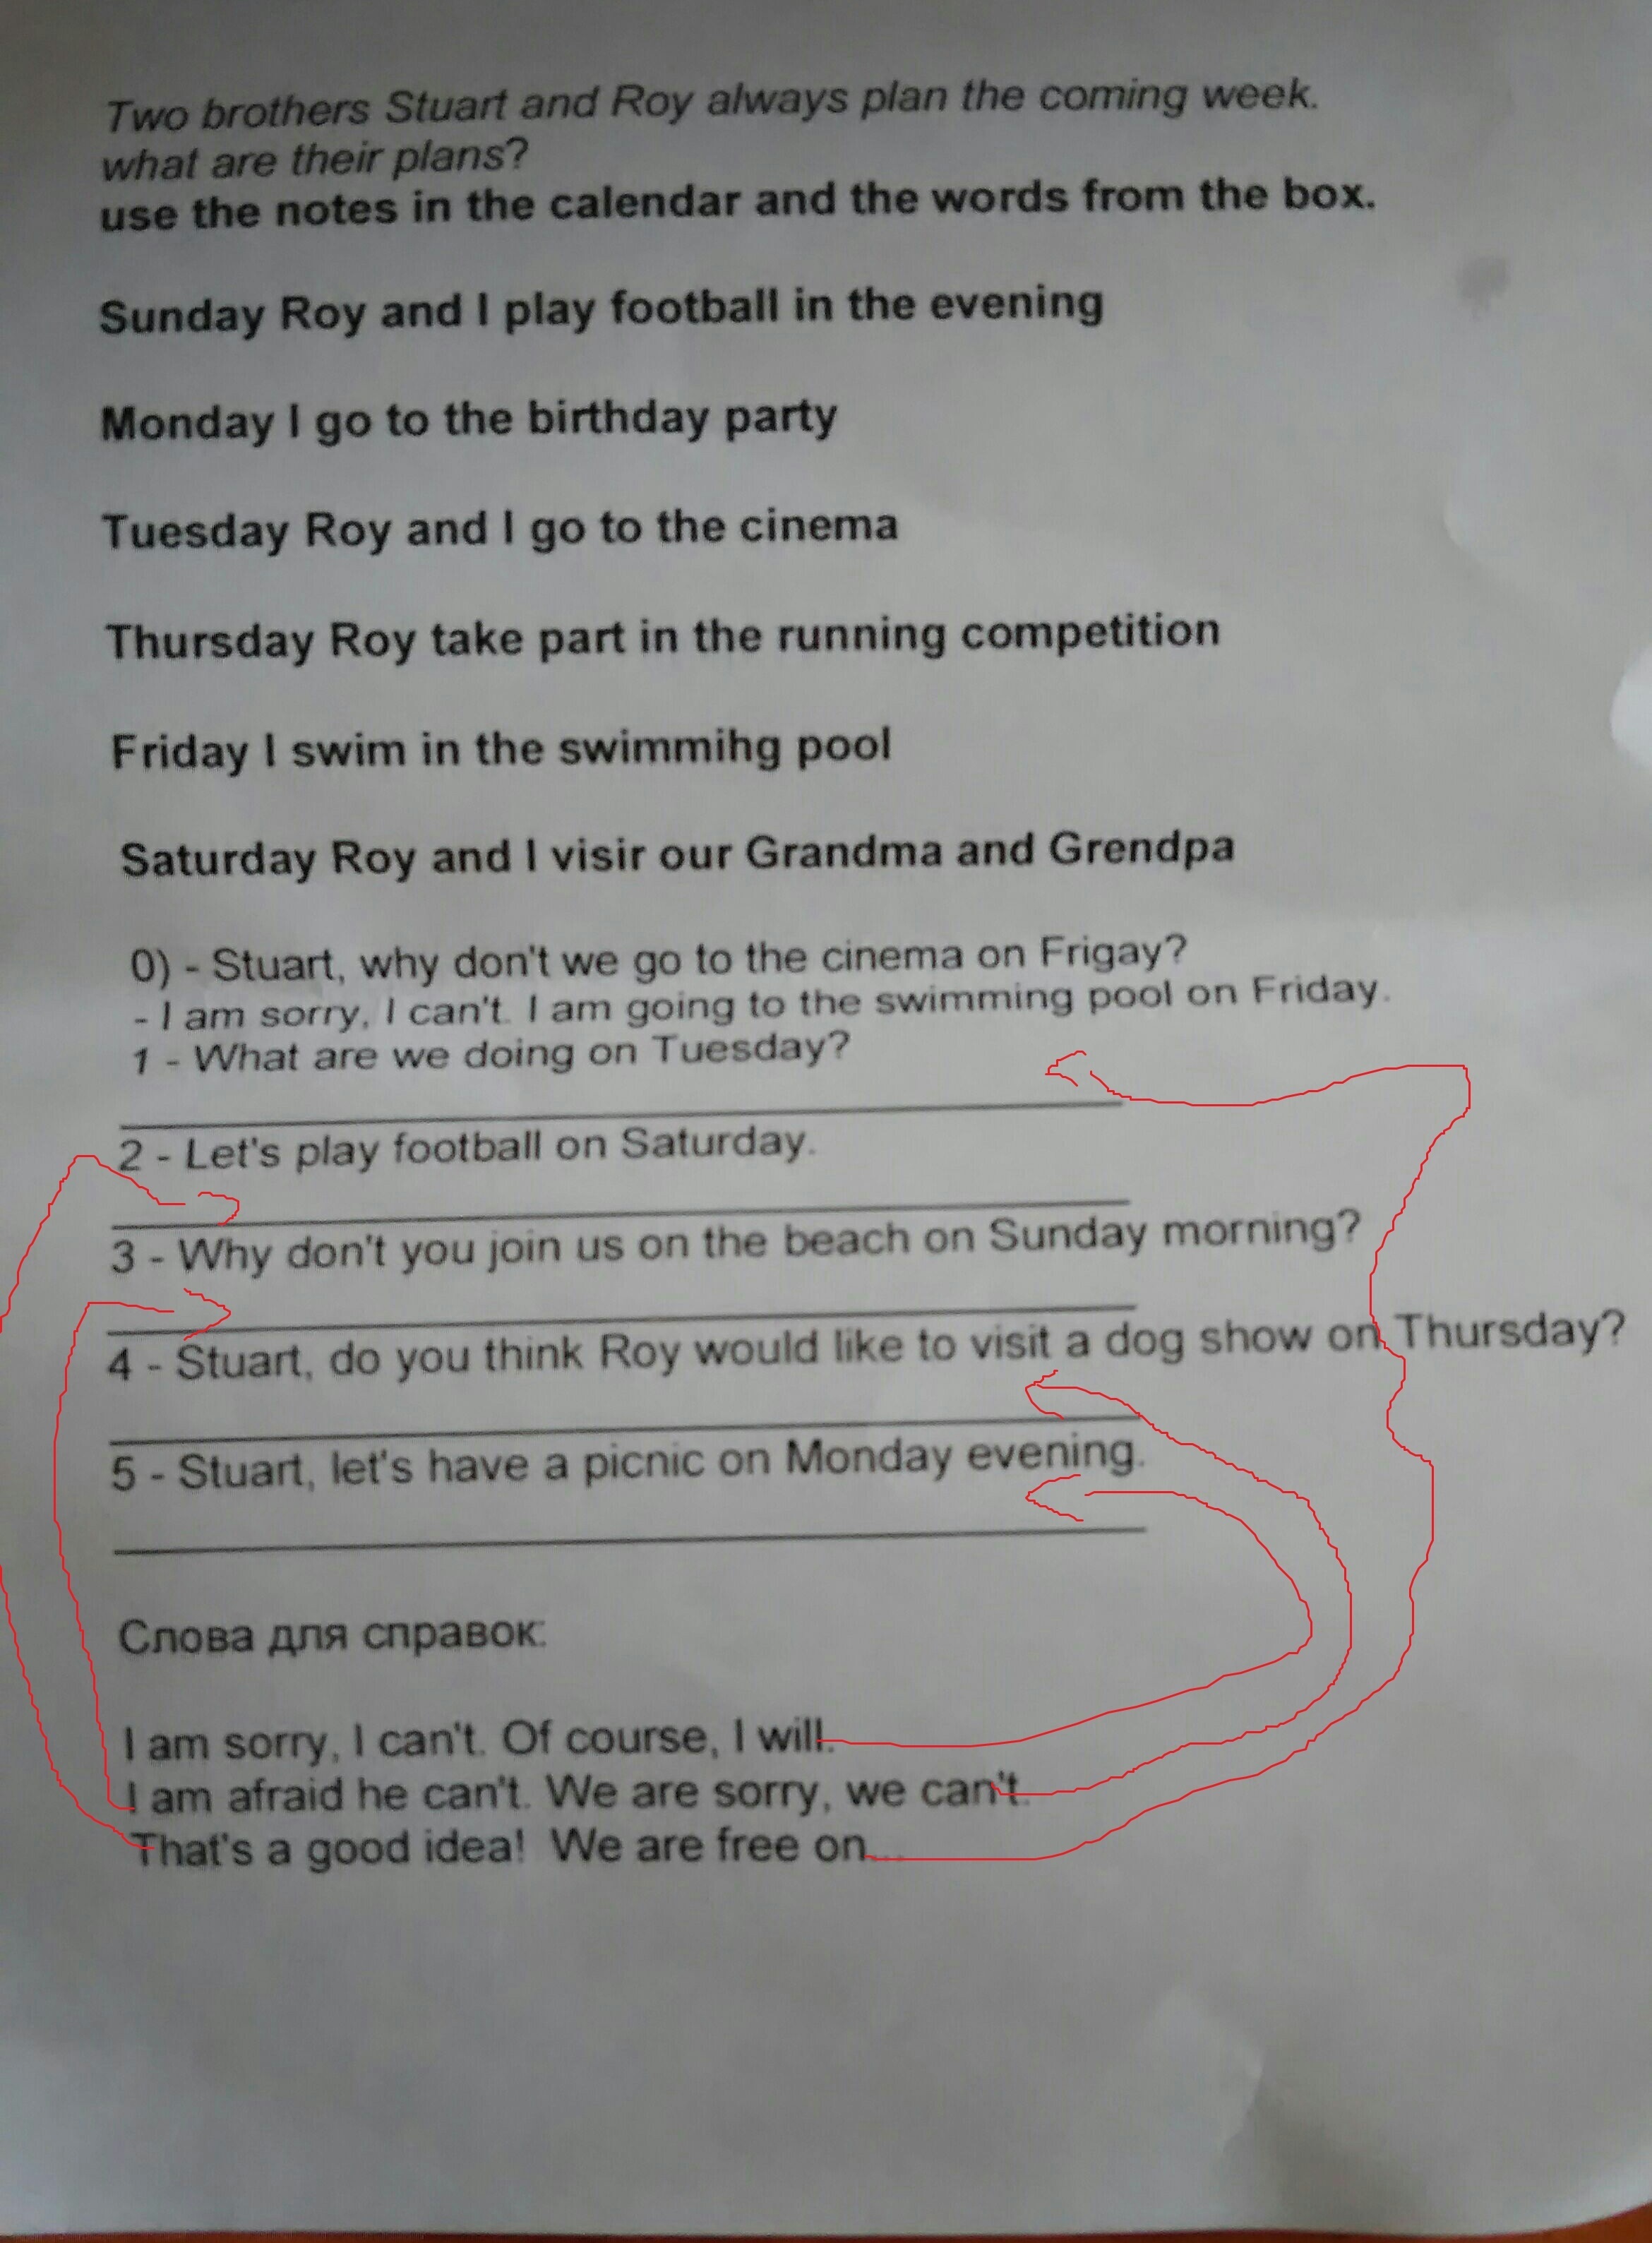 Two brothers Stuart and Roy always plan the coming week.
what are their plans?
use the notes in the calendar and the words from the box.
Sunday Roy and I play football in the evening
Monday I go to the birthday party
Tuesday Roy and I go to the cinema
Thursday Roy take part in the running competition
Friday I swim in the swimmihg pool
Saturday Roy and I visir our Grandma and Grendpa
0) - Stuart, why don't we go to the cinema on Frigay?
- I am sorry, I can't. I am going to the swimming pool on Friday.
1 - What are we doing on Tuesday?
2 - Let's play football on Saturday.
3 - Why don't you join us on the beach on Sunday morning?
4 - Stuart, do you think Roy would like to visit a dog show on Thursday?
5 - Stuart, let's have a picnic on Monday evening.
Слова для справок:
I am sorry, I can't. Of course, I will.
I am afraid he can't. We are sorry, we can't.
That's a good idea! We are free on...